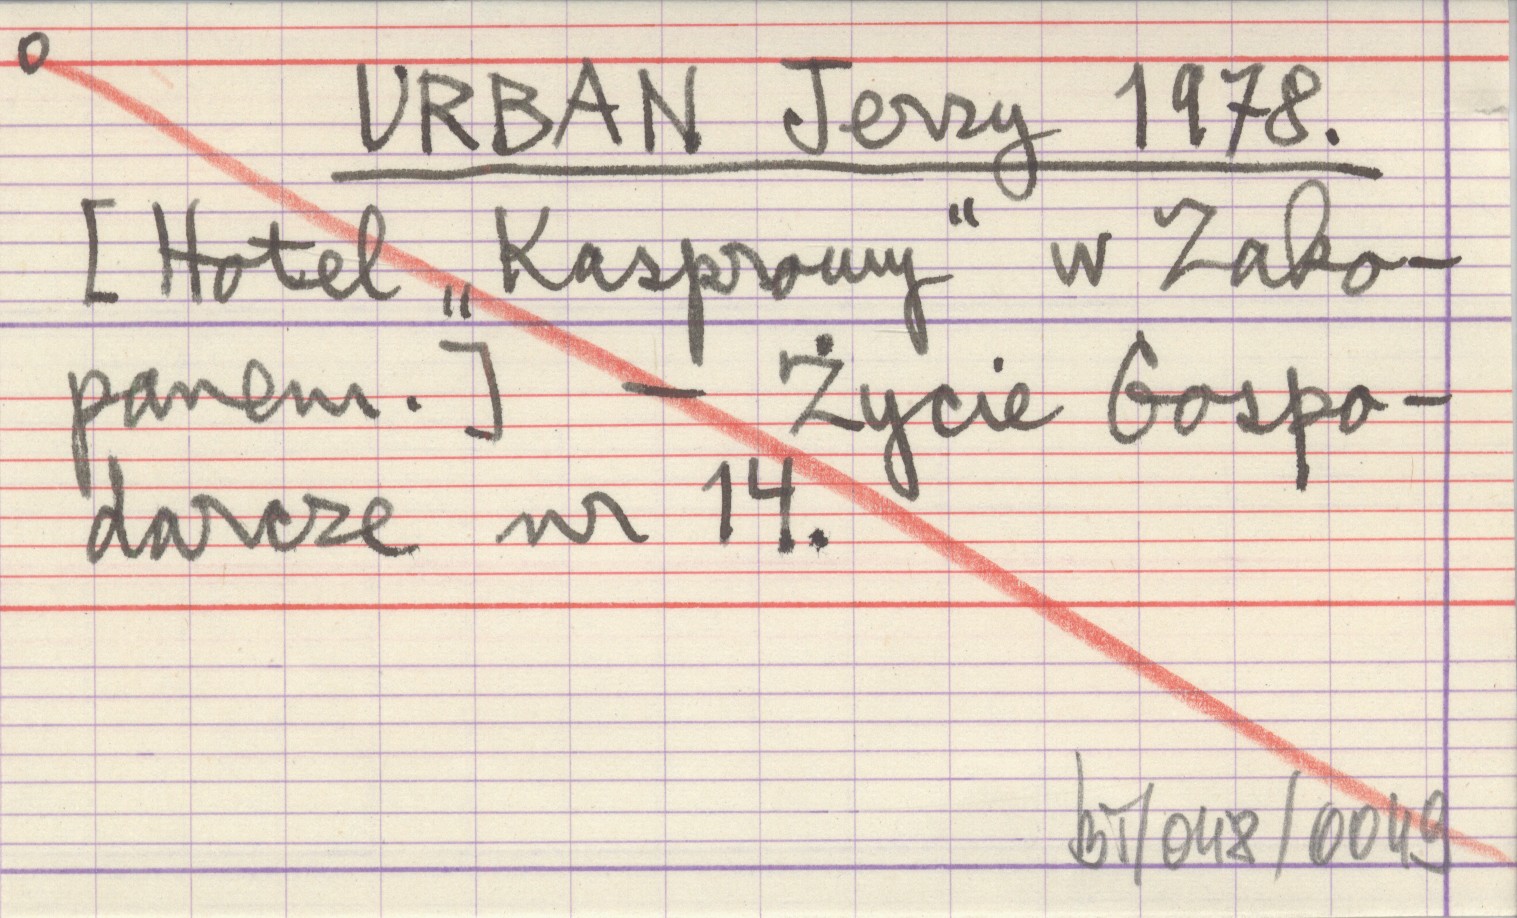 o
URBAN Jerzy 1978.
[Hotel „Kasprowy“ w Zako-
panem.] — Życie Gospo-
darcze nr 14.
bT/048/0049